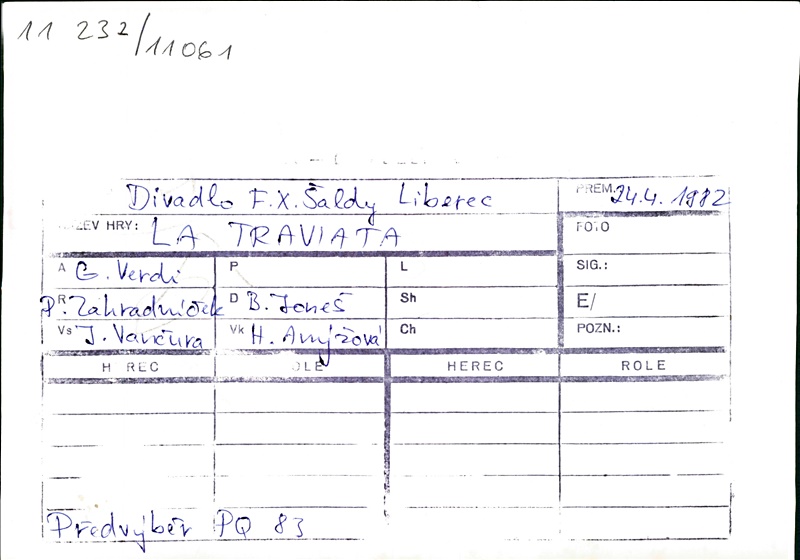 11 232/11061
Divadlo F.X. Šaldy Liberec PREM. 24.4. 1982
ZEV HRY: LA TRAVIATA FOTO
A G. Verdi P L SIG.:
R P. Zahradníček D B. Joneš Sh E/
Vs J. Vančura Vk H. Anýžová Ch POZN.:
H REC OLE HEREC ROLE
Předvýběr PQ 83